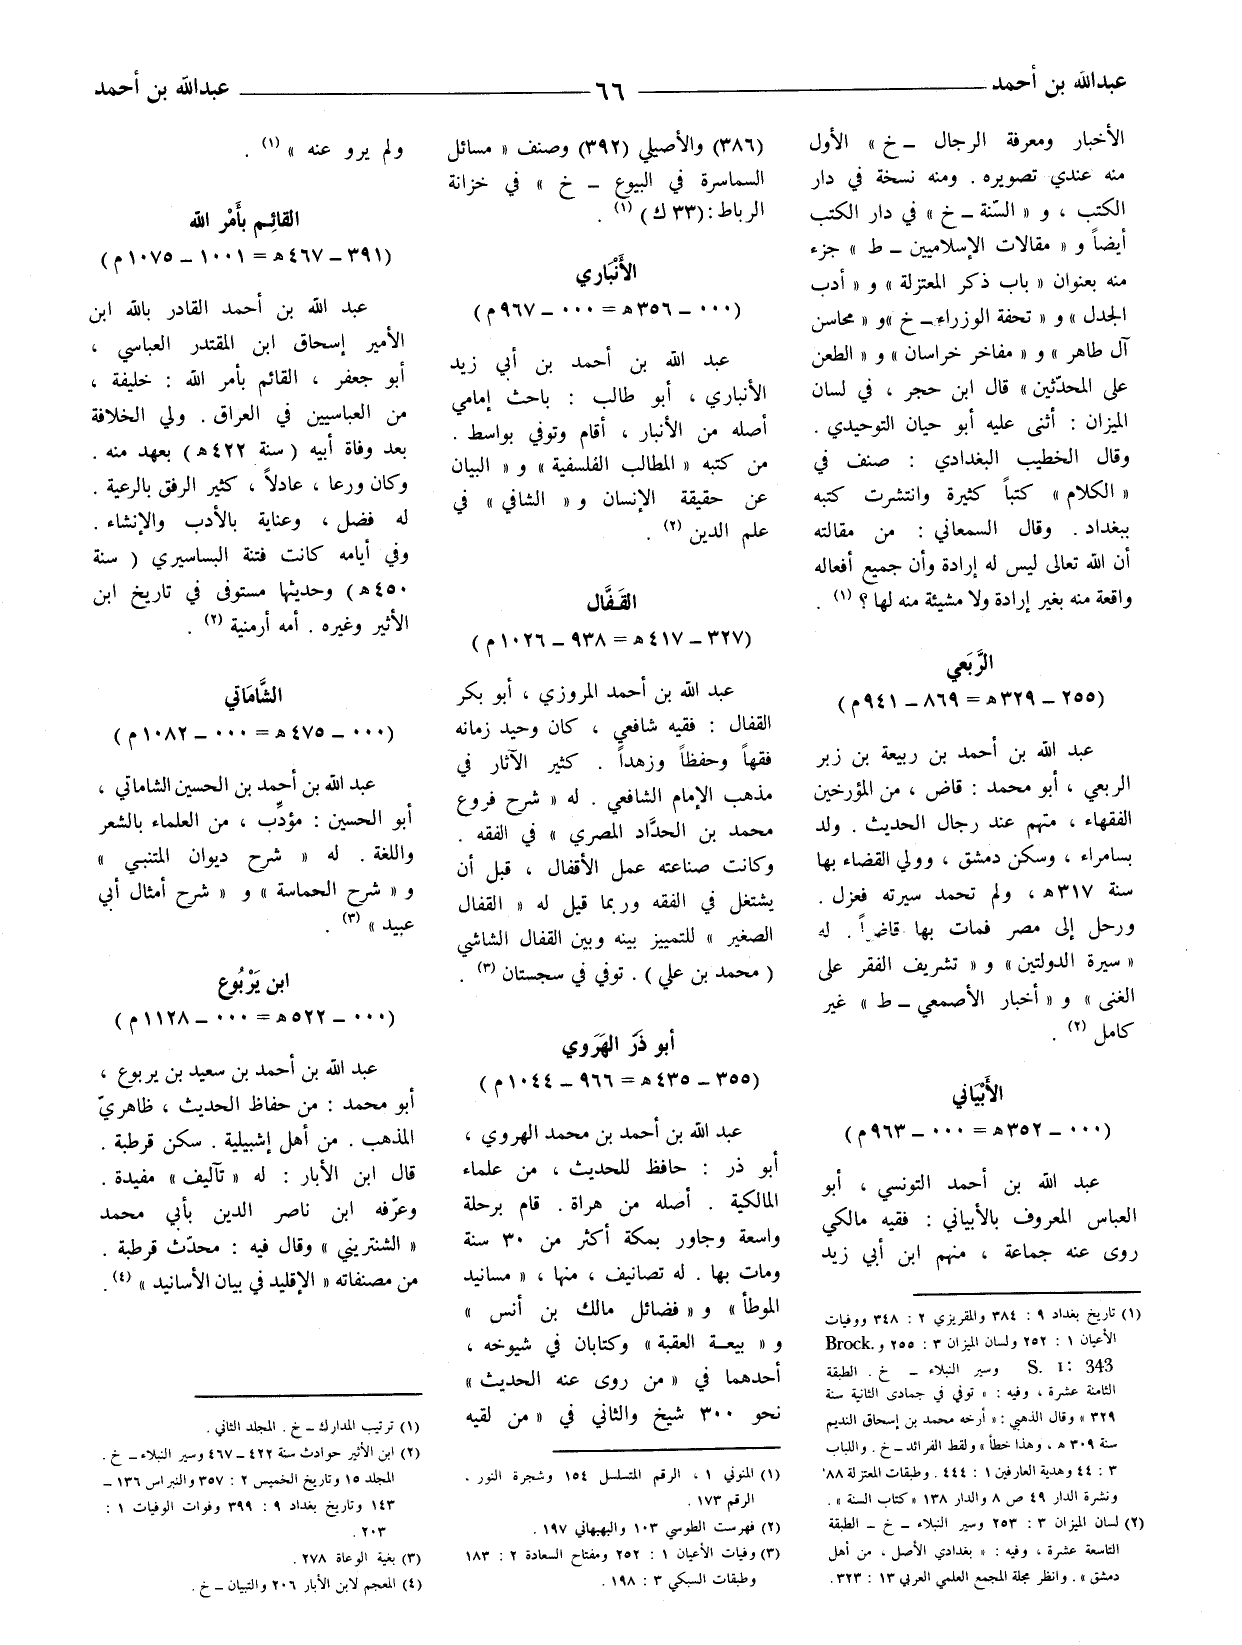 عبدالله بن أحمد ــــــ ٦٦ ــــــ عبدالله بن أحمد
الأخبار ومعرفة الرجال ــ خ » الأول
منه عندي تصويره . ومنه نسخة في دار
الكتب ، و « السّنة ــ خ » في دار الكتب
أيضاً و « مقالات الإسلاميين ــ ط » جزء
منه بعنوان « باب ذكر المعتزلة » و « أدب
الجدل » و « تحفة الوزراء ــ خ » و « محاسن
آل طاهر » و « مفاخر خراسان » و « الطعن
على المحدّثين » قال ابن حجر ، في لسان
الميزان : أثنى عليه أبو حيان التوحيدي .
وقال الخطيب البغدادي : صنف في
« الكلام » كتباً كثيرة وانتشرت كتبه
ببغداد . وقال السمعاني : من مقالته
أن الله تعالى ليس له إرادة وأن جميع أفعاله
واقعة منه بغير إرادة ولا مشيئة منه لها ؟ (١) .
الرَّبَعي
(٢٥٥ ــ ٣٢٩ هـ = ٨٦٩ ــ ٩٤١ م)
عبد الله بن أحمد بن ربيعة بن زبر
الربعي ، أبو محمد : قاض ، من المؤرخين
الفقهاء ، متهم عند رجال الحديث . ولد
بسامراء ، وسكن دمشق ، وولي القضاء بها
سنة ٣١٧ هـ ، ولم تحمد سيرته فعزل .
ورحل إلى مصر فمات بها قاضياً . له
« سيرة الدولتين » و « تشريف الفقر على
الغنى » و « أخبار الأصمعي ــ ط » غير
كامل (٢) .
الأَبْيَاني
(٠٠٠ ــ ٣٥٢ هـ = ٠٠٠ ــ ٩٦٣ م)
عبد الله بن أحمد التونسي ، أبو
العباس المعروف بالأبياني : فقيه مالكي
روى عنه جماعة ، منهم ابن أبي زيد
(١) تاريخ بغداد ٩ : ٣٨٤ والمقريزي ٢ : ٣٤٨ ووفيات
الأعيان ١ : ٢٥٢ ولسان الميزان ٣ : ٢٥٥ و Brock.
S. I: 343 وسير النبلاء ــ خ . الطبقة
الثامنة عشرة ، وفيه : « توفي في جمادى الثانية سنة
٣٢٩ » وقال الذهبي : « أرخه محمد بن إسحاق النديم
سنة ٣٠٩ هـ ، وهذا خطأ » ولقط الفرائد ــ خ . واللباب
٣ : ٤٤ وهدية العارفين ١ : ٤٤٤ . وطبقات المعتزلة ٨٨
ونشرة الدار ٤٩ ص ٨ والدار ١٣٨ « كتاب السنة » .
(٢) لسان الميزان ٣ : ٢٥٣ وسير النبلاء ــ خ ــ الطبقة
التاسعة عشرة ، وفيه : « بغدادي الأصل ، من أهل
دمشق » . وانظر مجلة المجمع العلمي العربي ١٣ : ٣٢٣ .
(٣٨٦) والأصيلي (٣٩٢) وصنف « مسائل
السماسرة في البيوع ــ خ » في خزانة
الرباط : (٣٣ ك) (١) .
الأَنْبَاري
(٠٠٠ ــ ٣٥٦ هـ = ٠٠٠ ــ ٩٦٧ م)
عبد الله بن أحمد بن أبي زيد
الأنباري ، أبو طالب : باحث إمامي
أصله من الأنبار ، أقام وتوفي بواسط .
من كتبه « المطالب الفلسفية » و « البيان
عن حقيقة الإنسان و « الشافي » في
علم الدين (٢) .
القَفَّال
(٣٢٧ ــ ٤١٧ هـ = ٩٣٨ ــ ١٠٢٦ م)
عبد الله بن أحمد المروزي ، أبو بكر
القفال : فقيه شافعي ، كان وحيد زمانه
فقهاً وحفظاً وزهداً . كثير الآثار في
مذهب الإمام الشافعي . له « شرح فروع
محمد بن الحدَّاد المصري » في الفقه .
وكانت صناعته عمل الأقفال ، قبل أن
يشتغل في الفقه وربما قيل له « القفال
الصغير » للتمييز بينه وبين القفال الشاشي
( محمد بن علي ) . توفي في سجستان (٣) .
أبو ذَرّ الهَرَوي
(٣٥٥ ــ ٤٣٥ هـ = ٩٦٦ ــ ١٠٤٤ م)
عبد الله بن أحمد بن محمد الهروي ،
أبو ذر : حافظ للحديث ، من علماء
المالكية . أصله من هراة . قام برحلة
واسعة وجاور بمكة أكثر من ٣٠ سنة
ومات بها . له تصانيف ، منها ، « مسانيد
الموطأ » و « فضائل مالك بن أنس »
و « بيعة العقبة » وكتابان في شيوخه ،
أحدهما في « من روى عنه الحديث »
نحو ٣٠٠ شيخ والثاني في « من لقيه
(١) المنوني ١ ، الرقم المتسلسل ١٥٤ وشجرة النور .
الرقم ١٧٣ .
(٢) فهرست الطوسي ١٠٣ والبهبهاني ١٩٧ .
(٣) وفيات الأعيان ١ : ٢٥٢ ومفتاح السعادة ٢ : ١٨٣
وطبقات السبكي ٣ : ١٩٨ .
ولم يرو عنه » (١) .
القائِم بأَمْر الله
(٣٩١ ــ ٤٦٧ هـ = ١٠٠١ ــ ١٠٧٥ م)
عبد الله بن أحمد القادر بالله ابن
الأمير إسحاق ابن المقتدر العباسي ،
أبو جعفر ، القائم بأمر الله : خليفة ،
من العباسيين في العراق . ولي الخلافة
بعد وفاة أبيه ( سنة ٤٢٢ هـ ) بعهد منه .
وكان ورعا ، عادلاً ، كثير الرفق بالرعية .
له فضل ، وعناية بالأدب والإنشاء .
وفي أيامه كانت فتنة البساسيري ( سنة
٤٥٠ هـ ) وحديثها مستوفى في تاريخ ابن
الأثير وغيره . أمه أرمنية (٢) .
الشَّامَاتي
(٠٠٠ ــ ٤٧٥ هـ = ٠٠٠ ــ ١٠٨٢ م)
عبد الله بن أحمد بن الحسين الشاماتي ،
أبو الحسين : مؤدِّب ، من العلماء بالشعر
واللغة . له « شرح ديوان المتنبي »
و « شرح الحماسة » و « شرح أمثال أبي
عبيد » (٣) .
ابن يَرْبُوع
(٠٠٠ ــ ٥٢٢ هـ = ٠٠٠ ــ ١١٢٨ م)
عبد الله بن أحمد بن سعيد بن يربوع ،
أبو محمد : من حفاظ الحديث ، ظاهريّ
المذهب . من أهل إشبيلية . سكن قرطبة .
قال ابن الأبار : له « تآليف » مفيدة .
وعرّفه ابن ناصر الدين بأبي محمد
« الشنتريني » وقال فيه : محدّث قرطبة .
من مصنفاته « الإقليد في بيان الأسانيد » (٤) .
(١) ترتيب المدارك ــ خ . المجلد الثاني .
(٢) ابن الأثير حوادث سنة ٤٢٢ ــ ٤٦٧ وسير النبلاء ــ خ .
المجلد ١٥ وتاريخ الخميس ٢ : ٣٥٧ والنبراس ١٣٦ ــ
١٤٣ وتاريخ بغداد ٩ : ٣٩٩ وفوات الوفيات ١ :
٢٠٣ .
(٣) بغية الوعاة ٢٧٨ .
(٤) المعجم لابن الأبار ٢٠٦ والتبيان ــ خ .